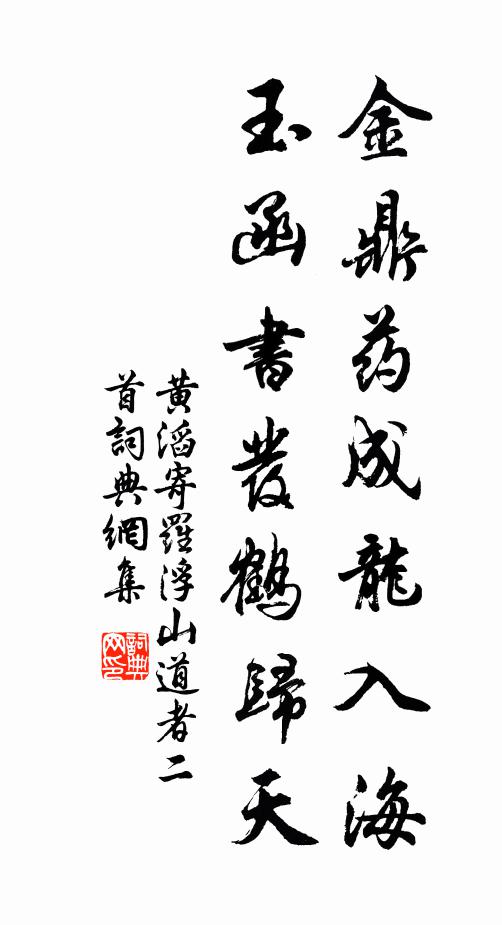 金鼎药成龍入海
玉函書發鶴歸天
黄滔寄羅浮山道者二
首詞典網集
詞典
网印